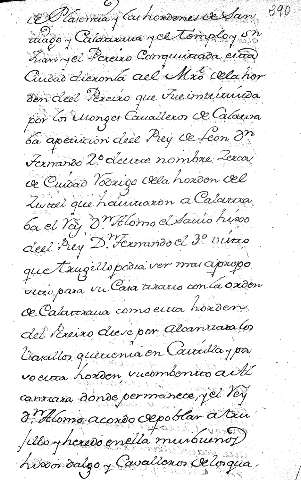 390
de Plasencia y las hordenes de San
tiago y Calatraua y el templo y Sn
Juan y el Pereiro Conquistada esta
Ciudad dieronla a el Mro de la hor
den de el Pereiro que fue instituida
por los Monges Caualleros de Calatra
ba a peticion de el Rey de Leon Dn
Fernando 2º de este nombre Zerca
de Ciudad Rodrigo de la horden del
que hauitaron a Calatra
ba el Rey Dn Alonso el Sauio hijo
de el Rey Dn Fernando el 3º visto
que truxillo podia ser mas apropo
sito, para su Casa trato con la orden
de Calatraua como esta horden
del Pereiro diese por Alcantara los
Castillos que tenia en Castilla y pa
so esta horden su combento a Al
cantara donde permanece, y el Rey
Dn Alonso acordo de poblar a tru
jillo y heredo en ella muchos
hijos dalgo y Caualleros de los qua